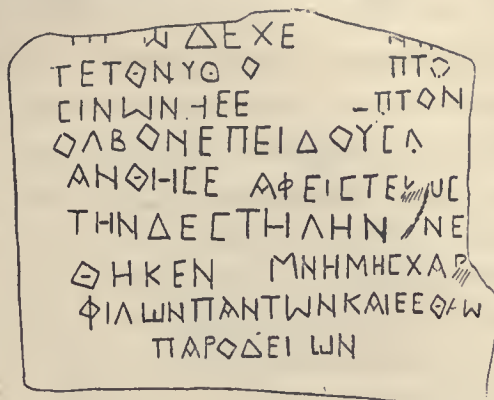 Ш ΔΕΧΕ
ΤΕΤΟΝΥΘ Ο ΠΤΟ
CΙΝWΝ ΗΕΕ ΠΤΟΝ
ΟΛΒΟΝΕΠΕΙΔΟΥCΑ
ΑΝΘΙΗCΕ ΑΦΕΙCΤΕ
ΤΗΝΔΕCΤΗΛΗΝ ΝΕ
ΘΗΚΕΝ ΜΝΗΜΗCΧΑΡ
ΦΙΛWΝΠΑΝΤWΝΚΑΙΕΕΘΗW
ΠΑΡΟΔΕΙ WΝ